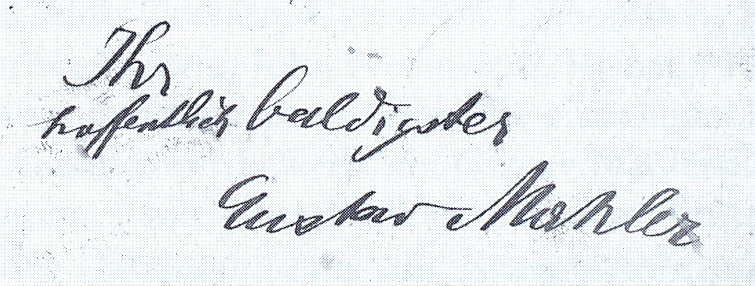 Ihr
hoffentlich baldigster
Gustav Mahler